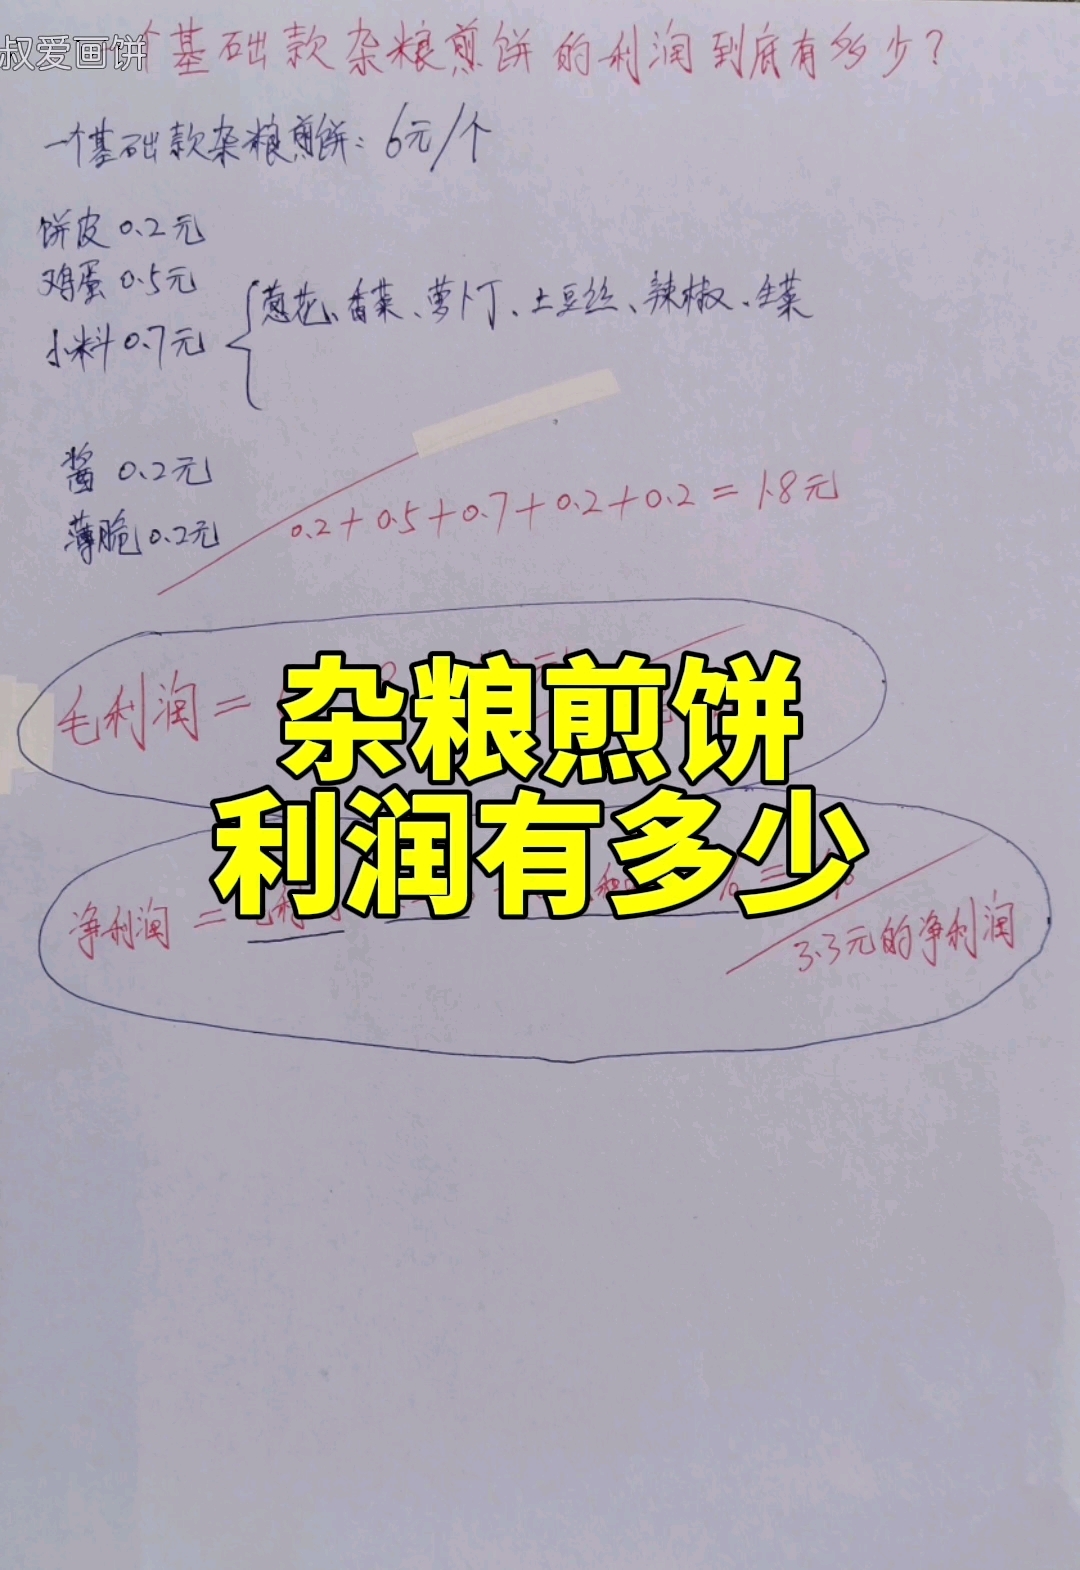 叔爱画饼
个基础款杂粮煎饼的利润到底有多少?
一个基础款杂粮煎饼：6元/个
饼皮 0.2元
鸡蛋 0.5元
小料 0.7元
葱花、香菜、萝卜丁、土豆丝、辣椒、生菜
酱 0.2元
薄脆 0.2元
0.2+0.5+0.7+0.2+0.2=1.8元
毛利润=
杂粮煎饼
利润有多少
净利润=
3.3元的净利润